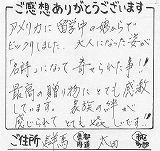 ご感想ありがとうございます
アメリカに留学中の娘からで
ビックリしました。大人になった姿が
「名詩」になって寄せられた事!!
最高の贈り物にとても感激
しています。家族の絆が
感じられてとても嬉しいです!
ご住所 群馬 都道府県 太田